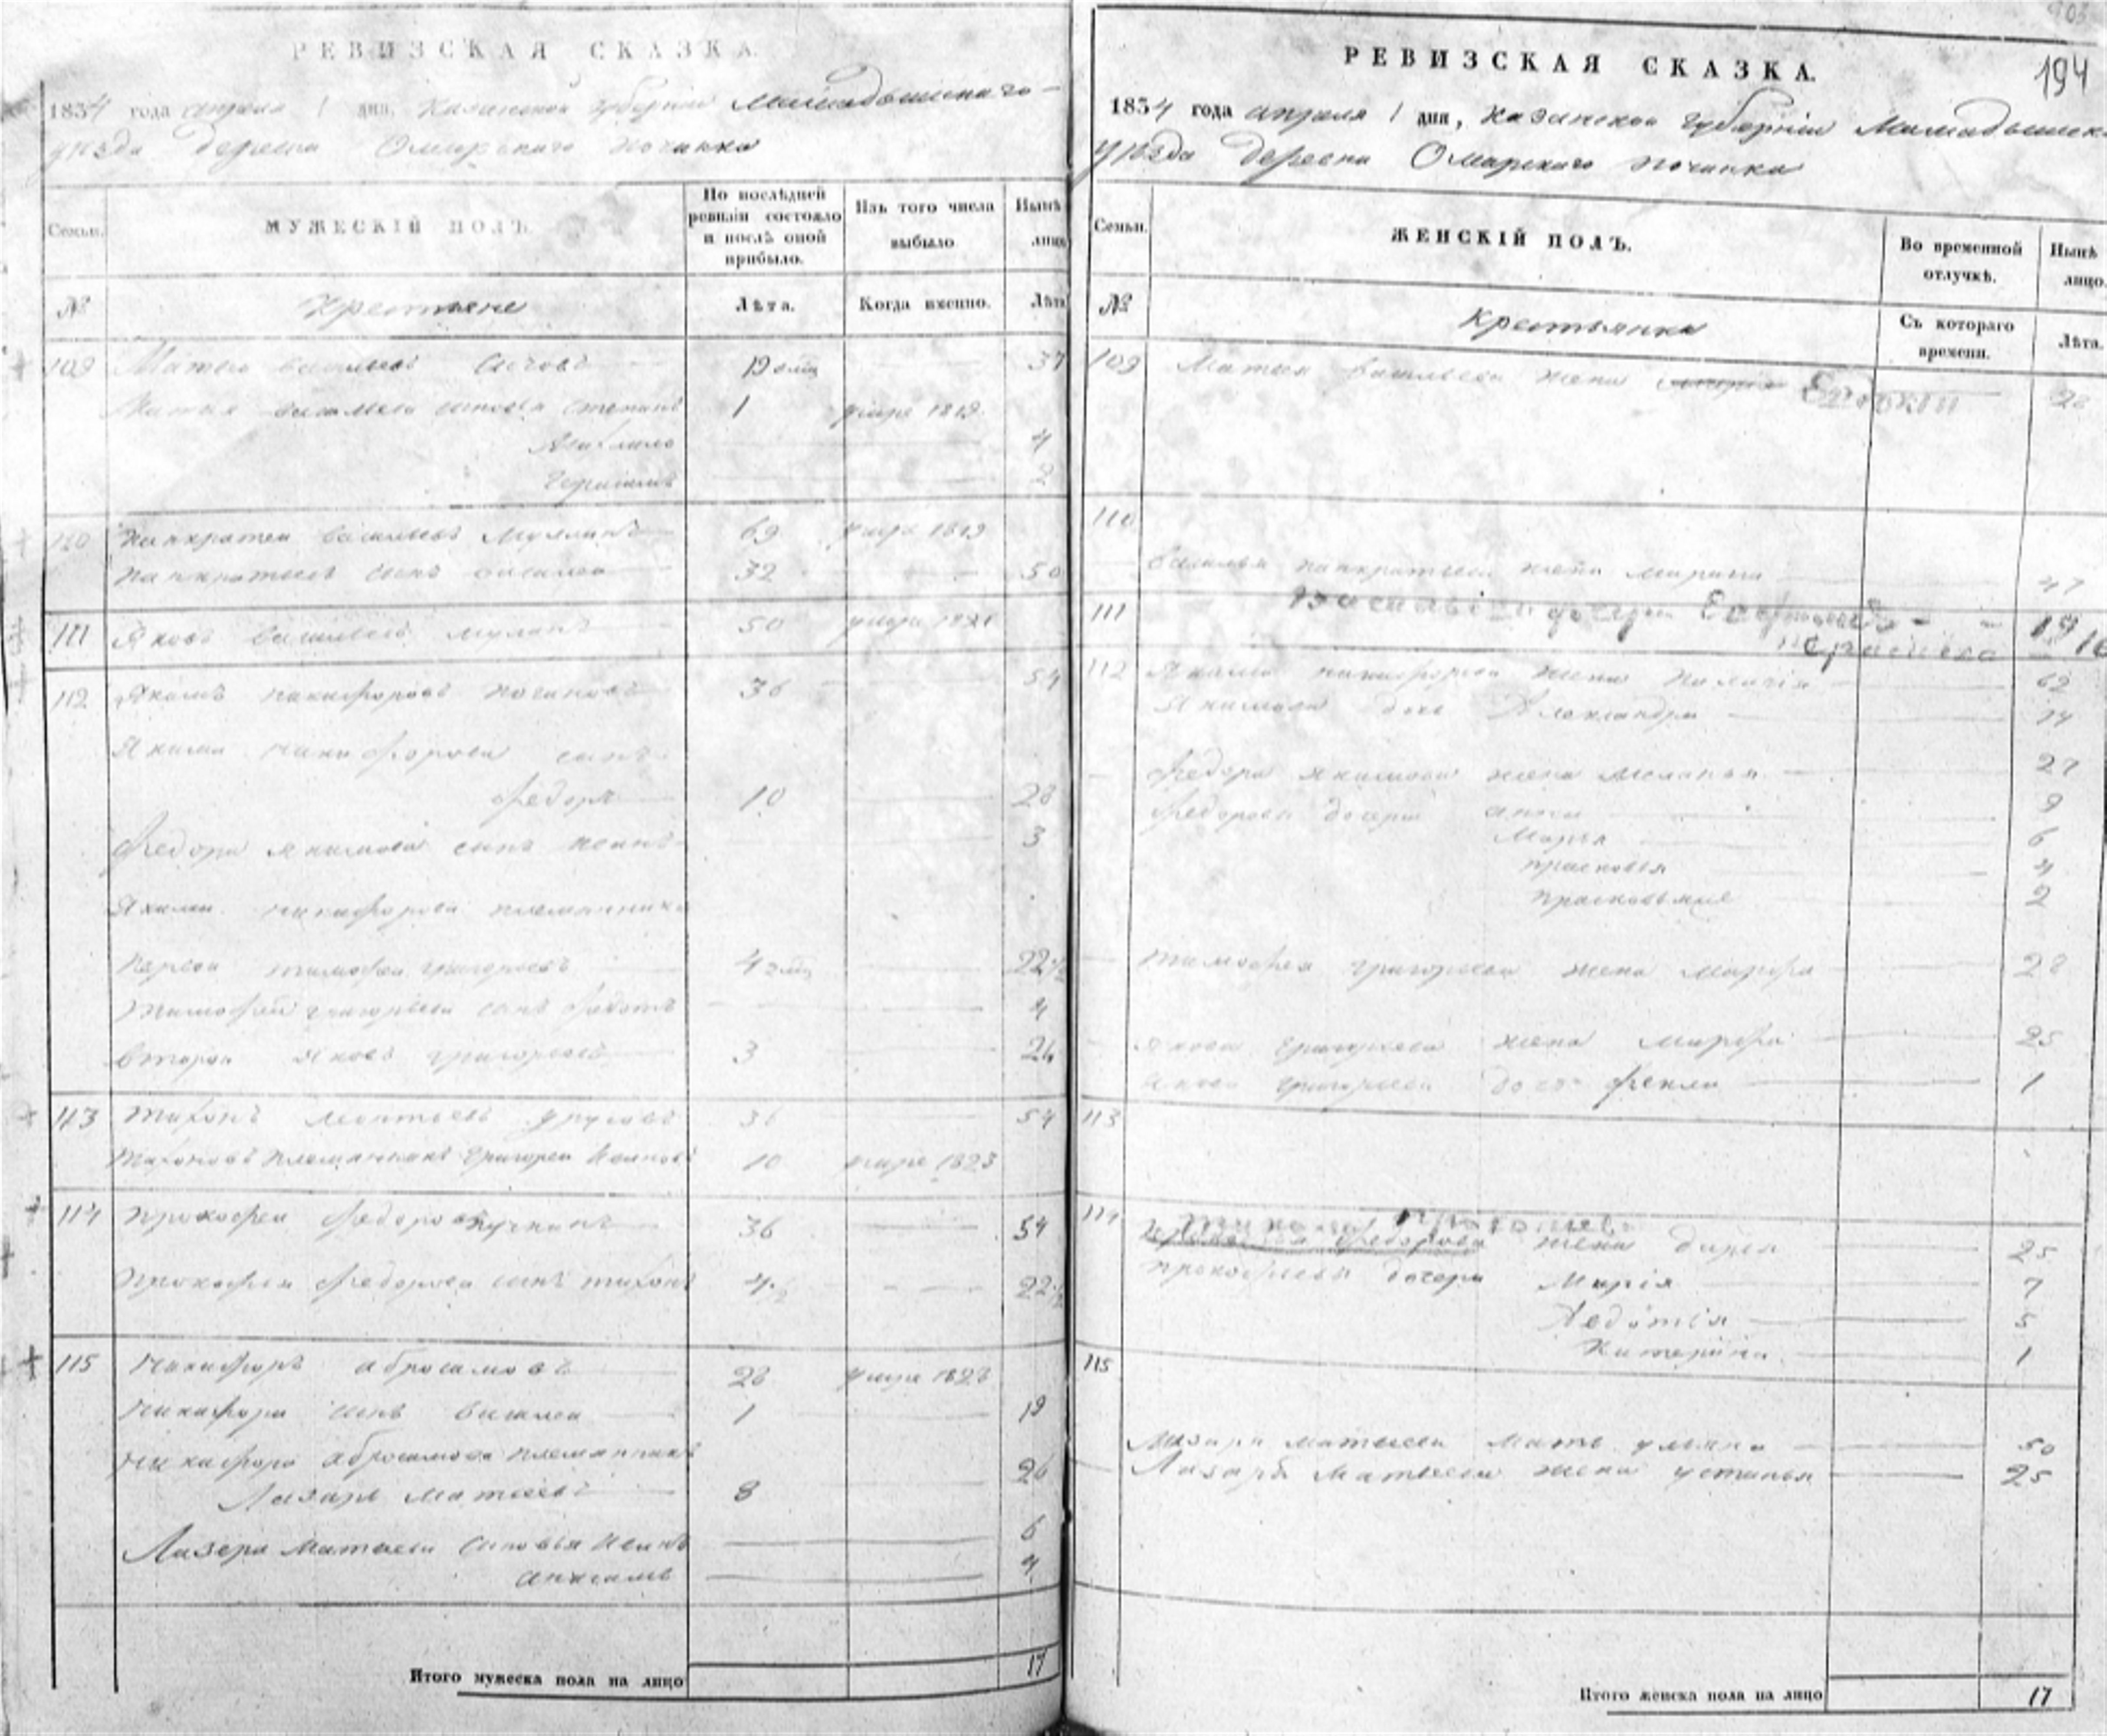 РЕВИЗСКАЯ СКАЗКА.
1834 года апреля 1 дня, Казанской губернии Мамадышскаго
уезда деревни Омарскаго починка
Семьи.
МУЖЕСКІЙ ПОЛЪ.
По послѣдней ревизіи состояло и послѣ оной прибыло.
Изъ того числа выбыло
Нынѣ лицо
№
Крестьяне
Лѣта.
Когда именно.
Лѣта
109 Матвей Васильевъ 19 37
Матвея Васильева сыновья Степанъ 1 умре 1819
4
Герасимъ 2
110 Панкратей Васильевъ 69 умре 1819
Панкратьевъ сынъ Василей 32 50
111 Яковъ Васильевъ 50 умре
112 Якимъ Никифоровъ 36 54
Якима Никифорова сынъ
Федоръ 10 28
Федора Якимова сынъ Иванъ 3
Якима Никифорова племянники
Первой Тимофей Григорьевъ 4 22
Тимофея Григорьева сынъ Федотъ 4
Второй Яковъ Григорьевъ 3 21
113 Тихонъ Леонтьевъ 36 54
Тихоновъ племянникъ Григорей Ивановъ 10 умре 1823
114 Прокофей Федоровъ 36 54
Прокофея Федорова сынъ Тихонъ 4 1/2 22 1/2
115 Никифоръ Абросимовъ 28 умре 1828
Никифора сынъ Василей 1 19
Никифора Абросимова племянникъ
Лазарь Матвеевъ 8 26
Лазаря Матвеева сыновья Иванъ 6
4
Итого мужеска пола на лицо 17
194
РЕВИЗСКАЯ СКАЗКА.
1834 года апреля 1 дня, Казанской губернии Мамадышска
уезда деревни Омарскаго починка
Семьи.
ЖЕНСКІЙ ПОЛЪ.
Во временной отлучкѣ.
Нынѣ лицо.
№
Крестьянки
Съ котораго времени.
Лѣта.
109 Матвея Васильева жена 28
110
Василья Панкратьева жена Марина 47
111 Васильевы дочери 19
16
112 Якима Никифорова жена Палагія 62
Якимова дочь Александра 14
Федора Якимова жена Меланья 27
Федоровы дочери Анна 9
Марья 6
Прасковья 4
2
Тимофея Григорьева жена Марфа 28
Якова Григорьева жена Марфа 25
Якова Григорьева дочь Фекла 1
113
114 Тихона Прокофьева
Прокофья Федорова жена Дарья 25
Прокофьевы дочери Марія 7
Авдотія 5
Катерина 1
115
Лазаря Матвеева мать Ульяна 50
Лазаря Матвеева жена Устинья 25
Итого женска пола на лицо 17